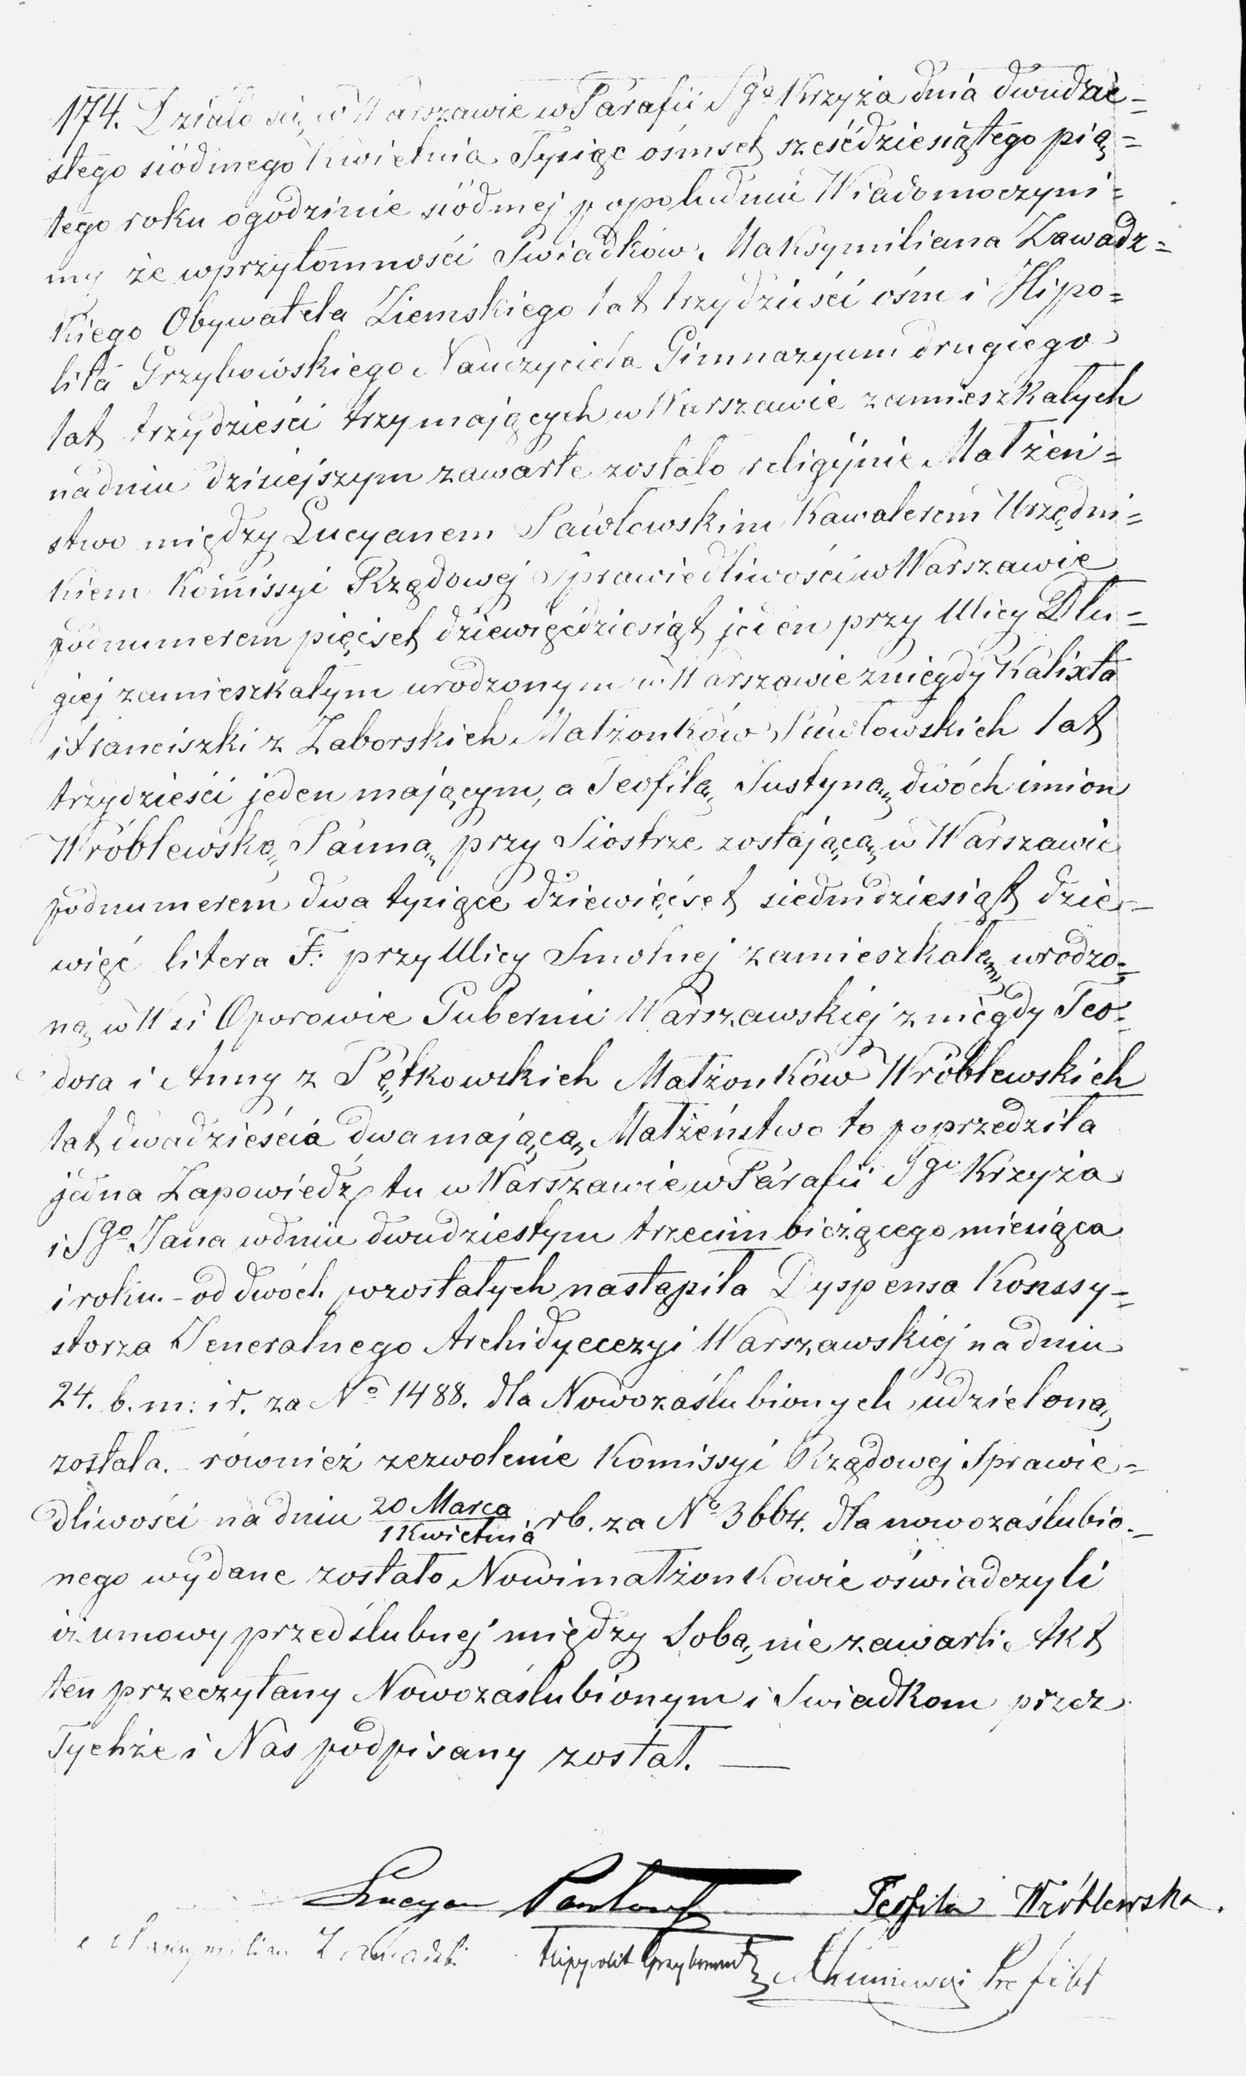 174. Działo się w Warszawie w Parafii Sgo Krzyża dnia dwudzie=
stego siódmego Kwietnia Tysiąc ośmset sześćdziesiątego pią=
tego roku o godzinie siódmej popołudniu Wiadomo czyni=
my że w przytomności Swiadków Maksymiliana Zawadz=
kiego Obywatela Ziemskiego lat trzydzieści ośm i Hipo=
lita Grzybowskiego Nauczyciela Gimnazyum drugiego
lat trzydzieści trzy mających w Warszawie zamieszkałych
na dniu dzisiejszym zawarte zostało religijnie Małżeń=
stwo między Lucyanem Pawłowskim Kawalerem Urzędni=
kiem Komissyi Rządowej Sprawiedliwości w Warszawie
pod numerem pięćset dziewięćdziesiąt jeden przy Ulicy Dłu=
giej zamieszkałym urodzonym w Warszawie z niegdy Kalixta
i Franciszki z Zaborskich Małżonków Pawłowskich lat
trzydzieści jeden mającym, a Teofilą Justyną dwóch imion
Wróblewską Panną przy Siostrze zostającą w Warszawie
pod numerem dwa tysiące dziewięćset siedmdziesiąt dzie=
więć litera F. przy Ulicy Smolnej zamieszkałą urodzo=
ną w Wsi Oporowie Gubernii Warszawskiej z niegdy Teo=
dora i Anny z Pętkowskich Małżonków Wróblewskich
lat dwadzieścia dwa mającą, Małżeństwo to poprzedziła
jedna Zapowiedź tu w Warszawie w Parafii Sgo Krzyża
i Sgo Jana w dniu dwudziestym trzecim bieżącego miesiąca
i roku. – od dwóch pozostałych nastąpiła Dyspensa Konsy=
storza Jeneralnego Archidyecezyi Warszawskiej na dniu
24. b. m. i r. za No 1488. dla Nowozaślubionych udzieloną
została. – również zezwolenie Komissyi Rządowej Sprawie=
dliwości na dniu 20 Marca / 1 Kwietnia rb. za No 3664. dla nowozaślubio=
nego wydane zostało Nowi małżonkowie oświadczyli
iż umowy przedślubnej między Sobą nie zawarli. Akt
ten przeczytany Nowozaślubionym i Swiadkom przez
Tychże i Nas podpisany został. —
Lucyan Pawłowski Teofila Wróblewska.
Maxymilian Zawadzki Hippolit Grzybowski